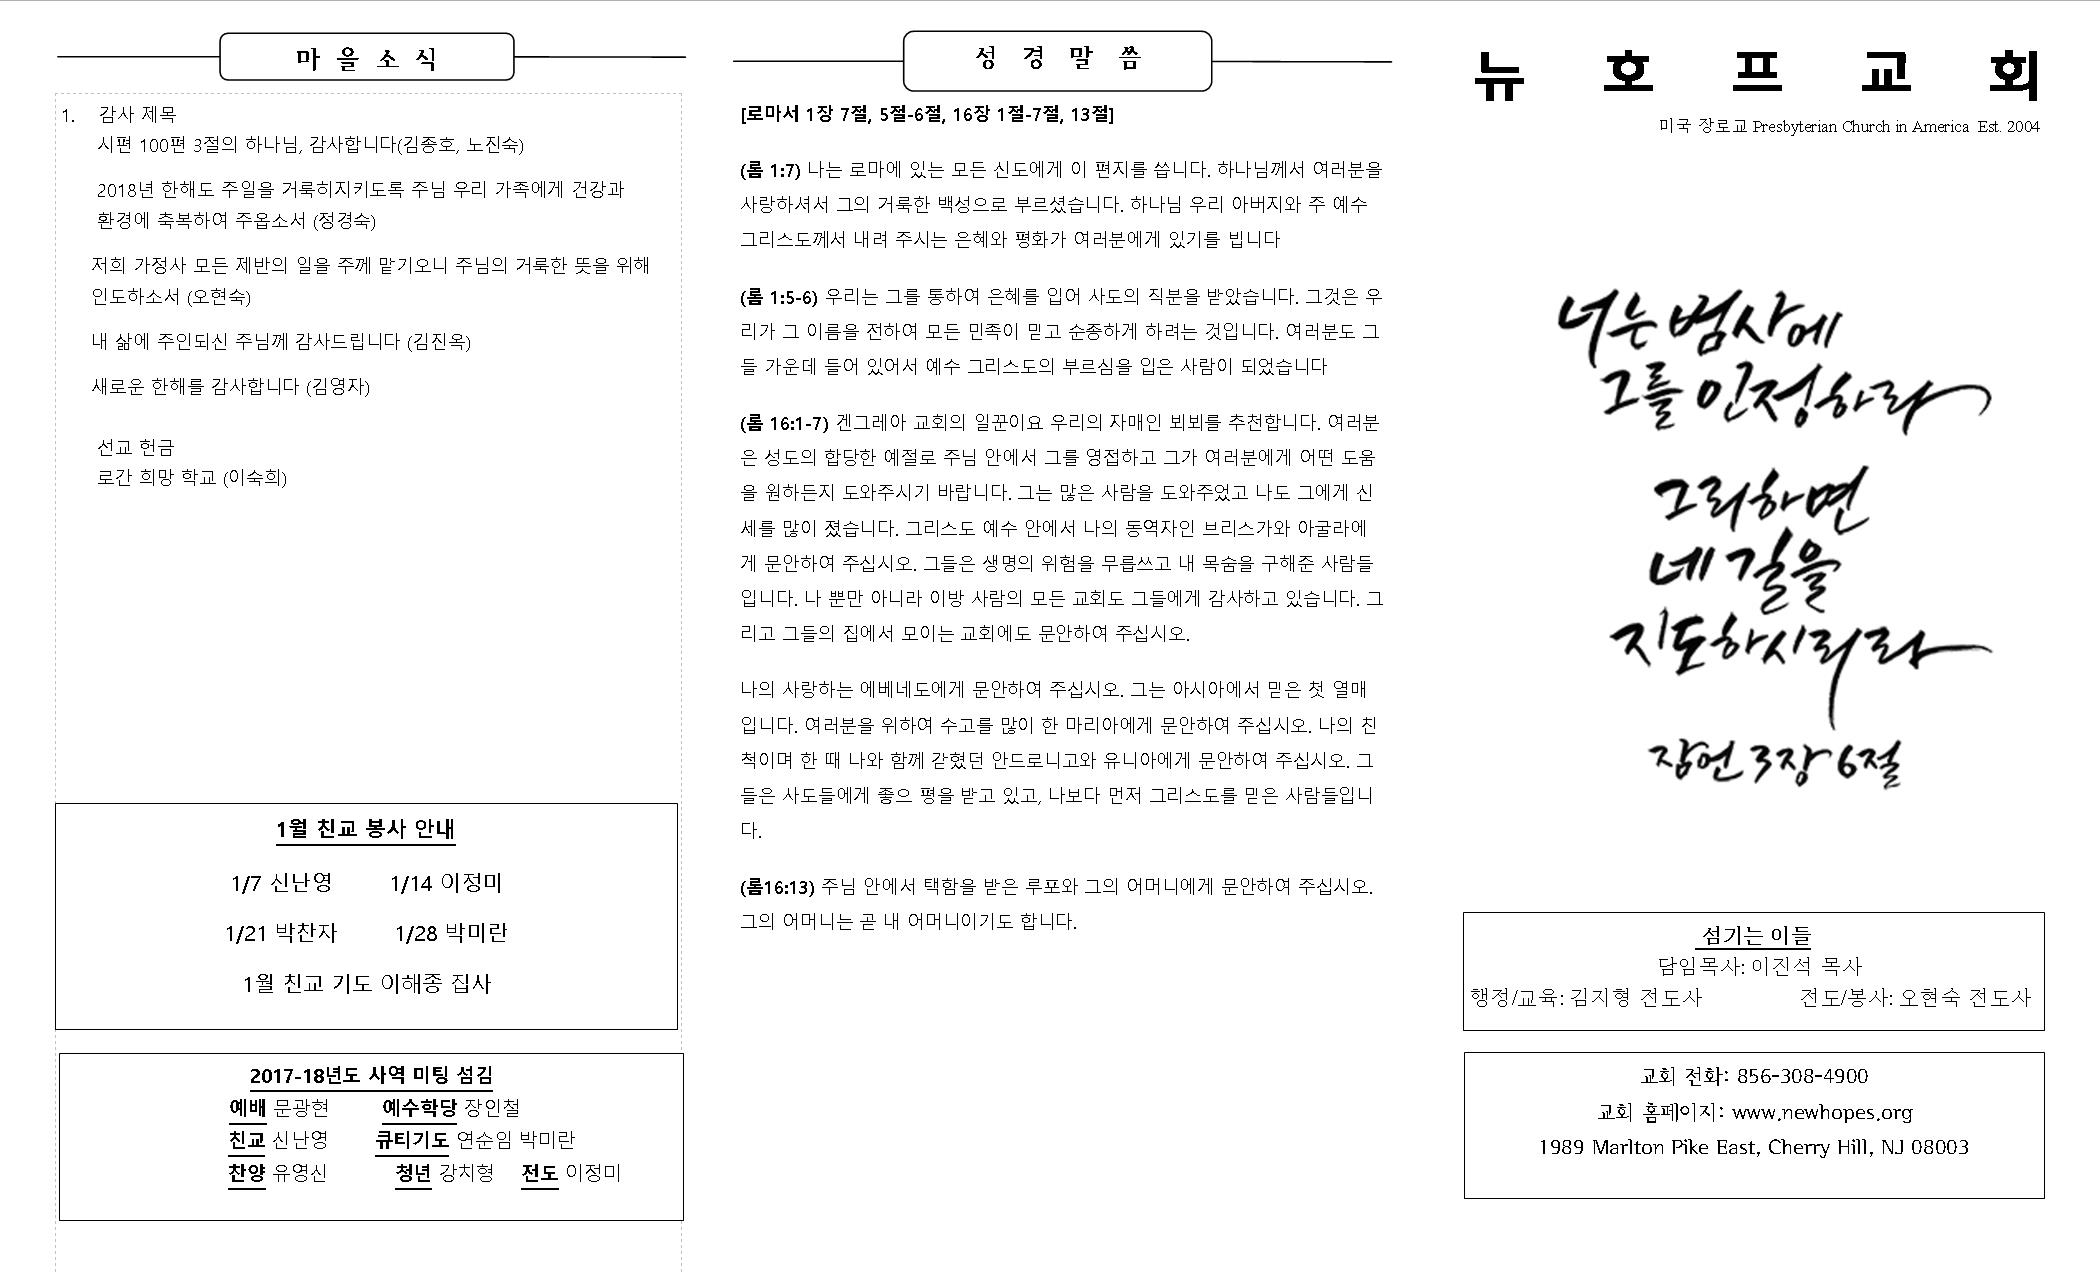 마 을 소 식
1. 감사 제목
시편 100편 3절의 하나님, 감사합니다(김종호, 노진숙)
2018년 한해도 주일을 거룩히지키도록 주님 우리 가족에게 건강과
환경에 축복하여 주옵소서 (정경숙)
저희 가정사 모든 제반의 일을 주께 맡기오니 주님의 거룩한 뜻을 위해
인도하소서 (오현숙)
내 삶에 주인되신 주님께 감사드립니다 (김진옥)
새로운 한해를 감사합니다 (김영자)
선교 헌금
로간 희망 학교 (이숙희)
1월 친교 봉사 안내
1/7 신난영 1/14 이정미
1/21 박찬자 1/28 박미란
1월 친교 기도 이해종 집사
2017-18년도 사역 미팅 섬김
예배 문광현 예수학당 장인철
친교 신난영 큐티기도 연순임 박미란
찬양 유영신 청년 강치형 전도 이정미
성 경 말 씀
[로마서 1장 7절, 5절-6절, 16장 1절-7절, 13절]
(롬 1:7) 나는 로마에 있는 모든 신도에게 이 편지를 씁니다. 하나님께서 여러분을
사랑하셔서 그의 거룩한 백성으로 부르셨습니다. 하나님 우리 아버지와 주 예수
그리스도께서 내려 주시는 은혜와 평화가 여러분에게 있기를 빕니다
(롬 1:5-6) 우리는 그를 통하여 은혜를 입어 사도의 직분을 받았습니다. 그것은 우
리가 그 이름을 전하여 모든 민족이 믿고 순종하게 하려는 것입니다. 여러분도 그
들 가운데 들어 있어서 예수 그리스도의 부르심을 입은 사람이 되었습니다
(롬 16:1-7) 겐그레아 교회의 일꾼이요 우리의 자매인 뵈뵈를 추천합니다. 여러분
은 성도의 합당한 예절로 주님 안에서 그를 영접하고 그가 여러분에게 어떤 도움
을 원하든지 도와주시기 바랍니다. 그는 많은 사람을 도와주었고 나도 그에게 신
세를 많이 졌습니다. 그리스도 예수 안에서 나의 동역자인 브리스가와 아굴라에
게 문안하여 주십시오. 그들은 생명의 위험을 무릅쓰고 내 목숨을 구해준 사람들
입니다. 나 뿐만 아니라 이방 사람의 모든 교회도 그들에게 감사하고 있습니다. 그
리고 그들의 집에서 모이는 교회에도 문안하여 주십시오.
나의 사랑하는 에베네도에게 문안하여 주십시오. 그는 아시아에서 믿은 첫 열매
입니다. 여러분을 위하여 수고를 많이 한 마리아에게 문안하여 주십시오. 나의 친
척이며 한 때 나와 함께 갇혔던 안드로니고와 유니아에게 문안하여 주십시오. 그
들은 사도들에게 좋으 평을 받고 있고, 나보다 먼저 그리스도를 믿은 사람들입니
다.
(롬16:13) 주님 안에서 택함을 받은 루포와 그의 어머니에게 문안하여 주십시오.
그의 어머니는 곧 내 어머니이기도 합니다.
뉴 호 프 교 회
미국 장로교 Presbyterian Church in America Est. 2004
너는 범사에
그를 인정하라
그리하면
네 길을
지도하시리라
잠언 3장 6절
섬기는 이들
담임목사: 이진석 목사
행정/교육: 김지형 전도사 전도/봉사: 오현숙 전도사
교회 전화: 856-308-4900
교회 홈페이지: www.newhopes.org
1989 Marlton Pike East, Cherry Hill, NJ 08003